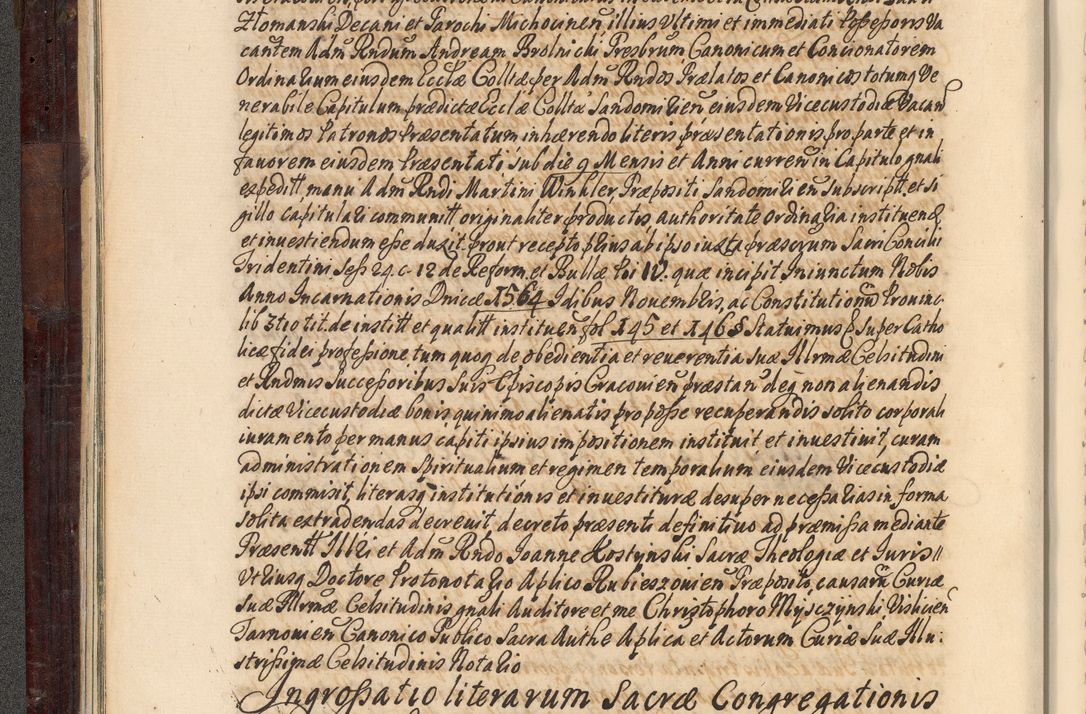 Złomanski Decani et Parochi Michocinen̄ illius Ultimi et immediati Possessoris Va
cantem Adm̄ Rndum Andream Brolnicki Presbrum, Canonicum et Concionatorem
Ordinarium eiusdem Eccłæ Colltæ, per Adm̄ Rndos Prælatos et Canonicos totumq̨ Ve
nerabile Capitulum prædictæ Eccłæ Colltæ Sandomirien̄ eiusdem Vicecustodiæ Vacan̄
legitimos Patronos Præsentatum inhærendo literis præsentationis pro parte et in
fauorem eiusdem Præsentati sub die 9 Mensis et Anni curren̄ in Capitulo gnali
expeditt, manu Adm̄ Rndi Martini Winkler, Præpositi Sandomirien̄ subscriptt, et si
gillo capitulari communitt originaliter productis, authoritate ordinaria instituend̄
et inuestiendum esse duxit, prout recepto prius ab ipso iuxta præscrṕum Sacri Concilii
Tridentini Sess 24 c. 12 de Reform. et Bullæ Pii IV. quæ incipit Iniunctum Nobis
Anno Incarnationis Dnicæ 1564 Idibus Nouembris, ac Constitutionū Prouinc
lib 3tio tit. de institt et qualitt instituen̄ fol 145 et 146 § Statuimus § Super Catho
licæ fidei professione tum quoq̨ de obedientia et reuerentia Suæ Illrmæ Celsitudini
et Rndmis Successoribus Suis Episcopis Cracouien̄ præstan̄ deq̨ non alienandis
dictæ Vicecustodiæ bonis, quinimo alienatis pro posse recuperandis solito corporali
iuramento per manus capiti ipsius impositionem instituit et inuestiuit, curam
administrationem Spiritualium et regimen temporalium eiusdem Vicecustodiæ
ipsi commisit, literasq̨ institutionis et inuestituræ desuper necessarias in forma
solita extradendas decreuit, decreto præsenti definitiuo ad præmissa mediante
Præsentt Illri et Adm̄ Rndo Ioanne Kostynski Sacræ Theologiæ et Iuris //
Utriusq̨ Doctore Protonotario Aplico Rubieszouien̄ Præposito, causarū Curiæ
Suæ Illrmæ Celsitudinis gnali Auditore et me Christophoro Mysczynski Vislicien̄
Tarnouien̄ Canonico Publico Sacra Authe Aplica et Actorum Curiæ Suæ Illu:
strissimæ Celsitudinis Notario
Ingrossatio literarum Sacræ Congregationis